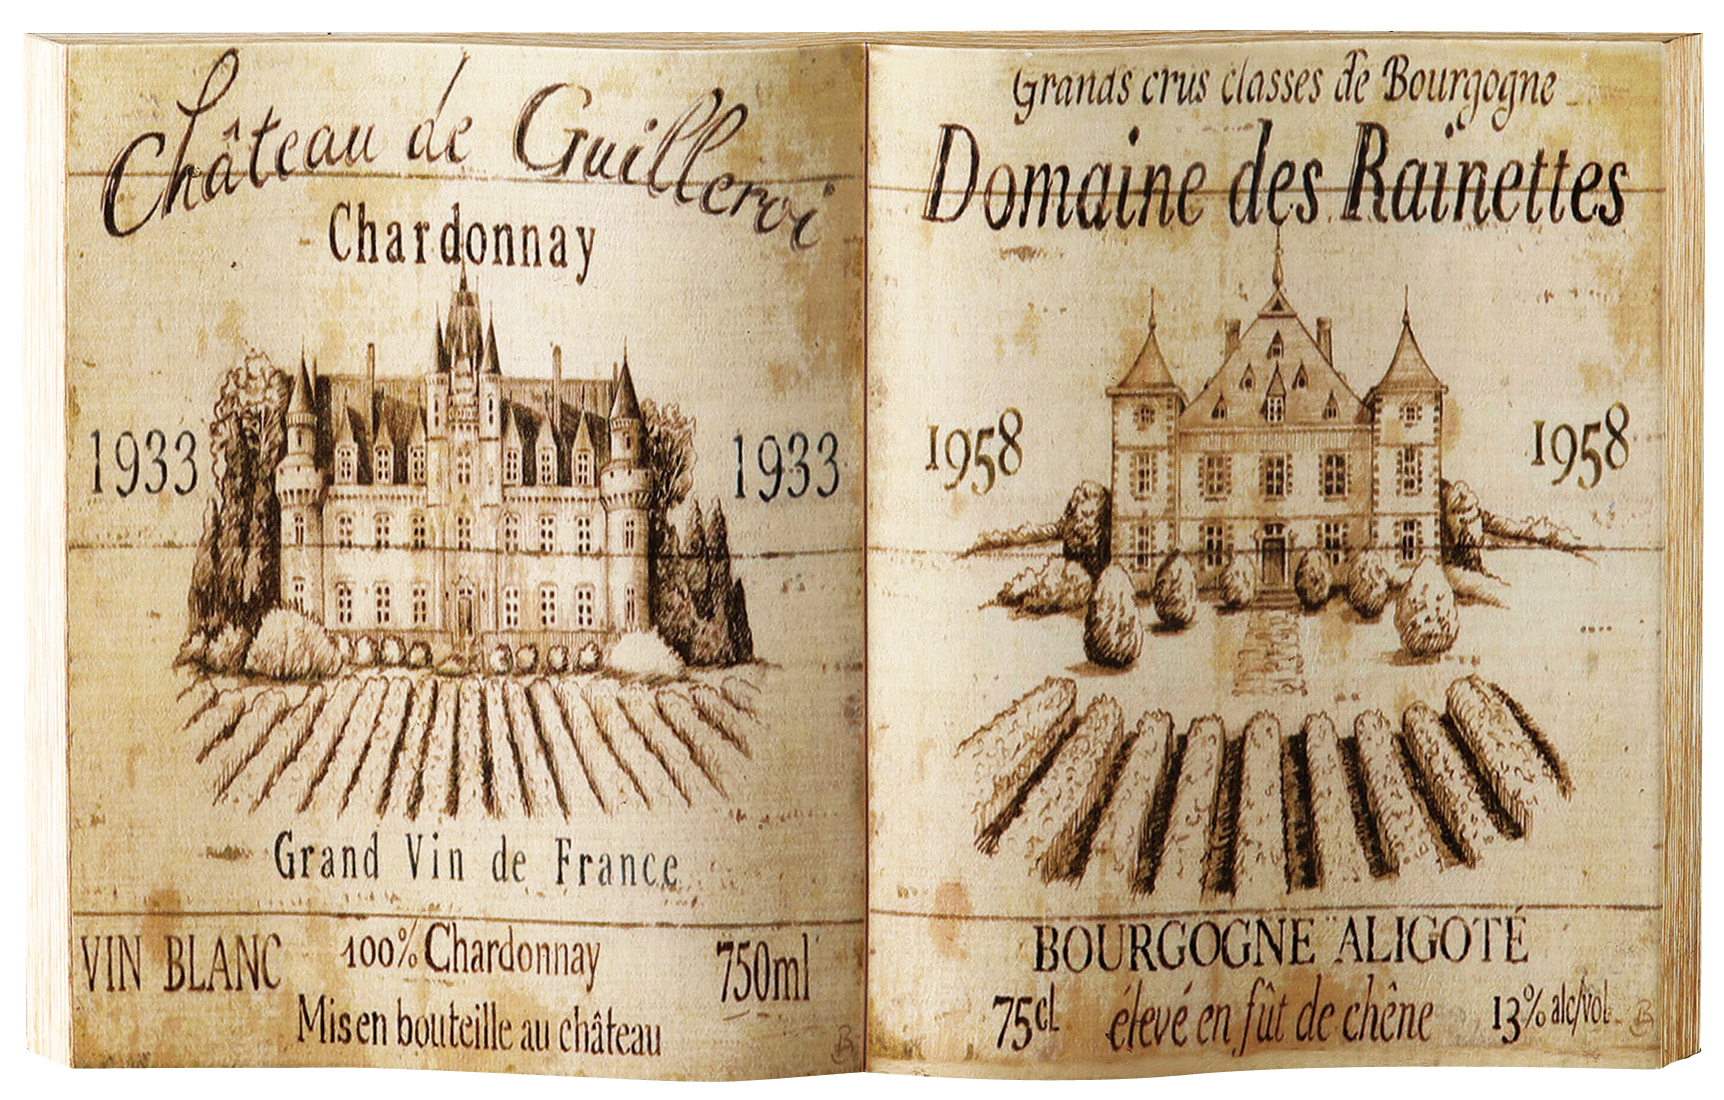 Château de Guilleroi
Chardonnay
1933 1933
Grand Vin de France
VIN BLANC
100% Chardonnay
750ml
Mis en bouteille au château
B
Grands crus classes de Bourgogne
Domaine des Rainettes
1958 1958
BOURGOGNE ALIGOTÉ
75cl
élevé en fût de chêne
13% alc/vol
B